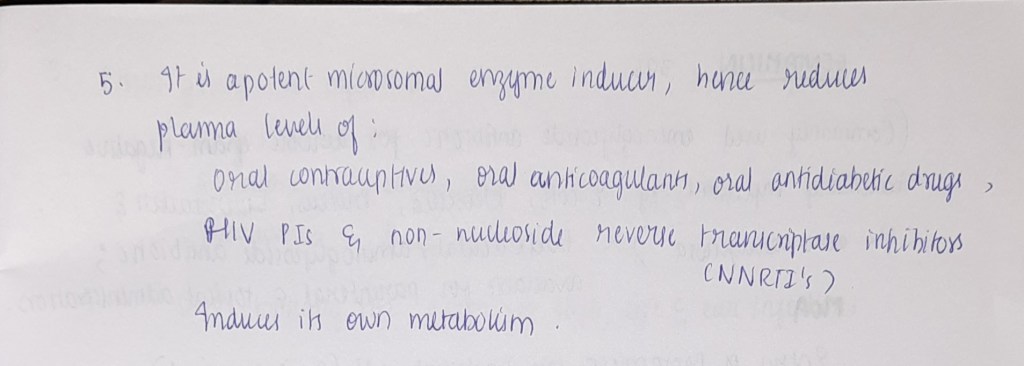 5. It is a potent microsomal enzyme inducer, hence reduces
plasma levels of :
oral contraceptives, oral anticoagulants, oral antidiabetic drugs,
HIV PIs & non-nucleoside reverse transcriptase inhibitors
(NNRTI's)
Induces its own metabolism.